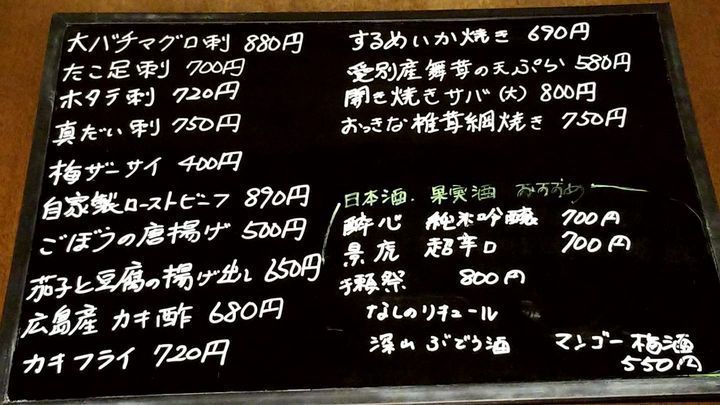 大バチマグロ刺 880円
たこ足刺 700円
ホタテ刺 720円
真だい刺 750円
梅ザーサイ 400円
自家製ローストビーフ 890円
ごぼうの唐揚げ 500円
茄子と豆腐の揚げ出し 650円
広島産 カキ酢 680円
カキフライ 720円
するめいか焼き 690円
愛別産舞茸の天ぷら 580円
開き焼きサバ(大) 800円
おっきな椎茸網焼き 750円
日本酒・果実酒 おすすめ
酔心 純米吟醸 700円
景虎 超辛口 700円
獺祭 800円
なしのリキュール
深山ぶどう酒 マンゴー梅酒
550円